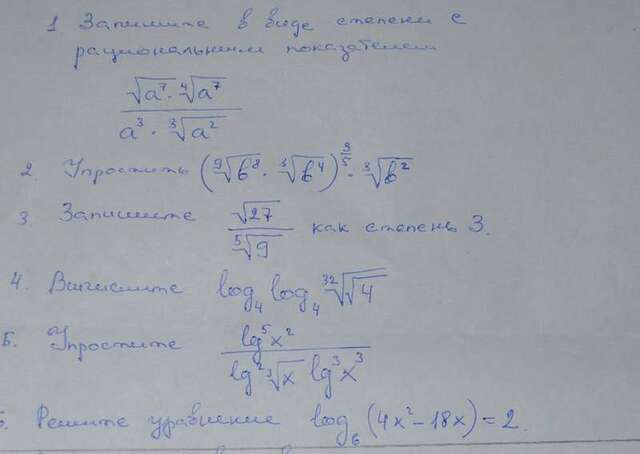 1 Запишите в виде степени с
рациональным показателем
√a⁷ · ⁴√a⁷ / a³ · ³√a²
2. Упростить (⁹√b⁸ · ³√b⁴)^(9/5) · ³√b²
3. Запишите √27 / ⁵√9 как степень 3.
4. Вычислите log₄ log₄ ³²√√4
5. Упростите lg⁵x² / lg² ³√x lg³x³
6. Решите уравнение log₆ (4x² - 18x) = 2.